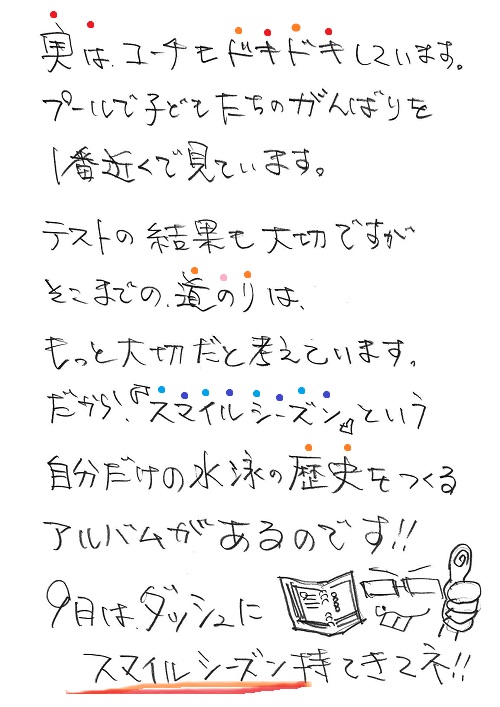 実は、コーチもドキドキしています。
プールで子どもたちのがんばりを
1番近くで見ています。
テストの結果も大切ですが
そこまでの、道のりは、
もっと大切だと考えています。
だから!、『スマイルシーズン』という
自分だけの水泳の歴史をつくる
アルバムがあるのです!!
9月は、ダッシュに
スマイルシーズン持てきてネ!!